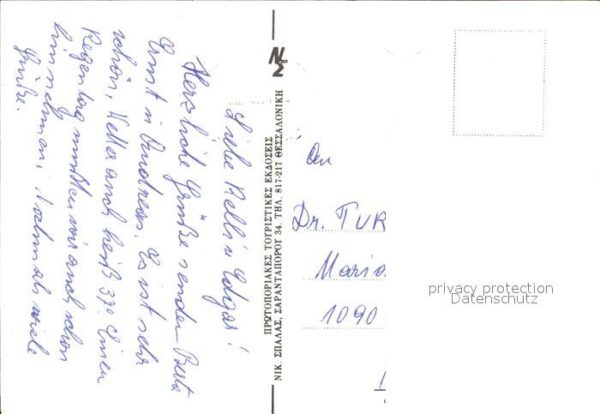 Liebe Nelli u. Edgar!
Herzliche Grüße senden Beata
Ernst u. Andreas. Es ist sehr
schön, Nella auch heiß 37° Einen
Regentag mußten wir auch schon
hinnehmen. nochmals viele
Grüße.
ΝΣ
ΠΡΩΤΟΠΟΡΙΑΚΕΣ ΤΟΥΡΙΣΤΙΚΕΣ ΕΚΔΟΣΕΙΣ
ΝΙΚ. ΣΠΑΛΑΣ, ΣΑΡΑΝΤΑΠΟΡΟΥ 34, ΤΗΛ. 817-217 ΘΕΣΣΑΛΟΝΙΚΗ
An
Dr. TUR
Maria
1090
privacy protection
Datenschutz